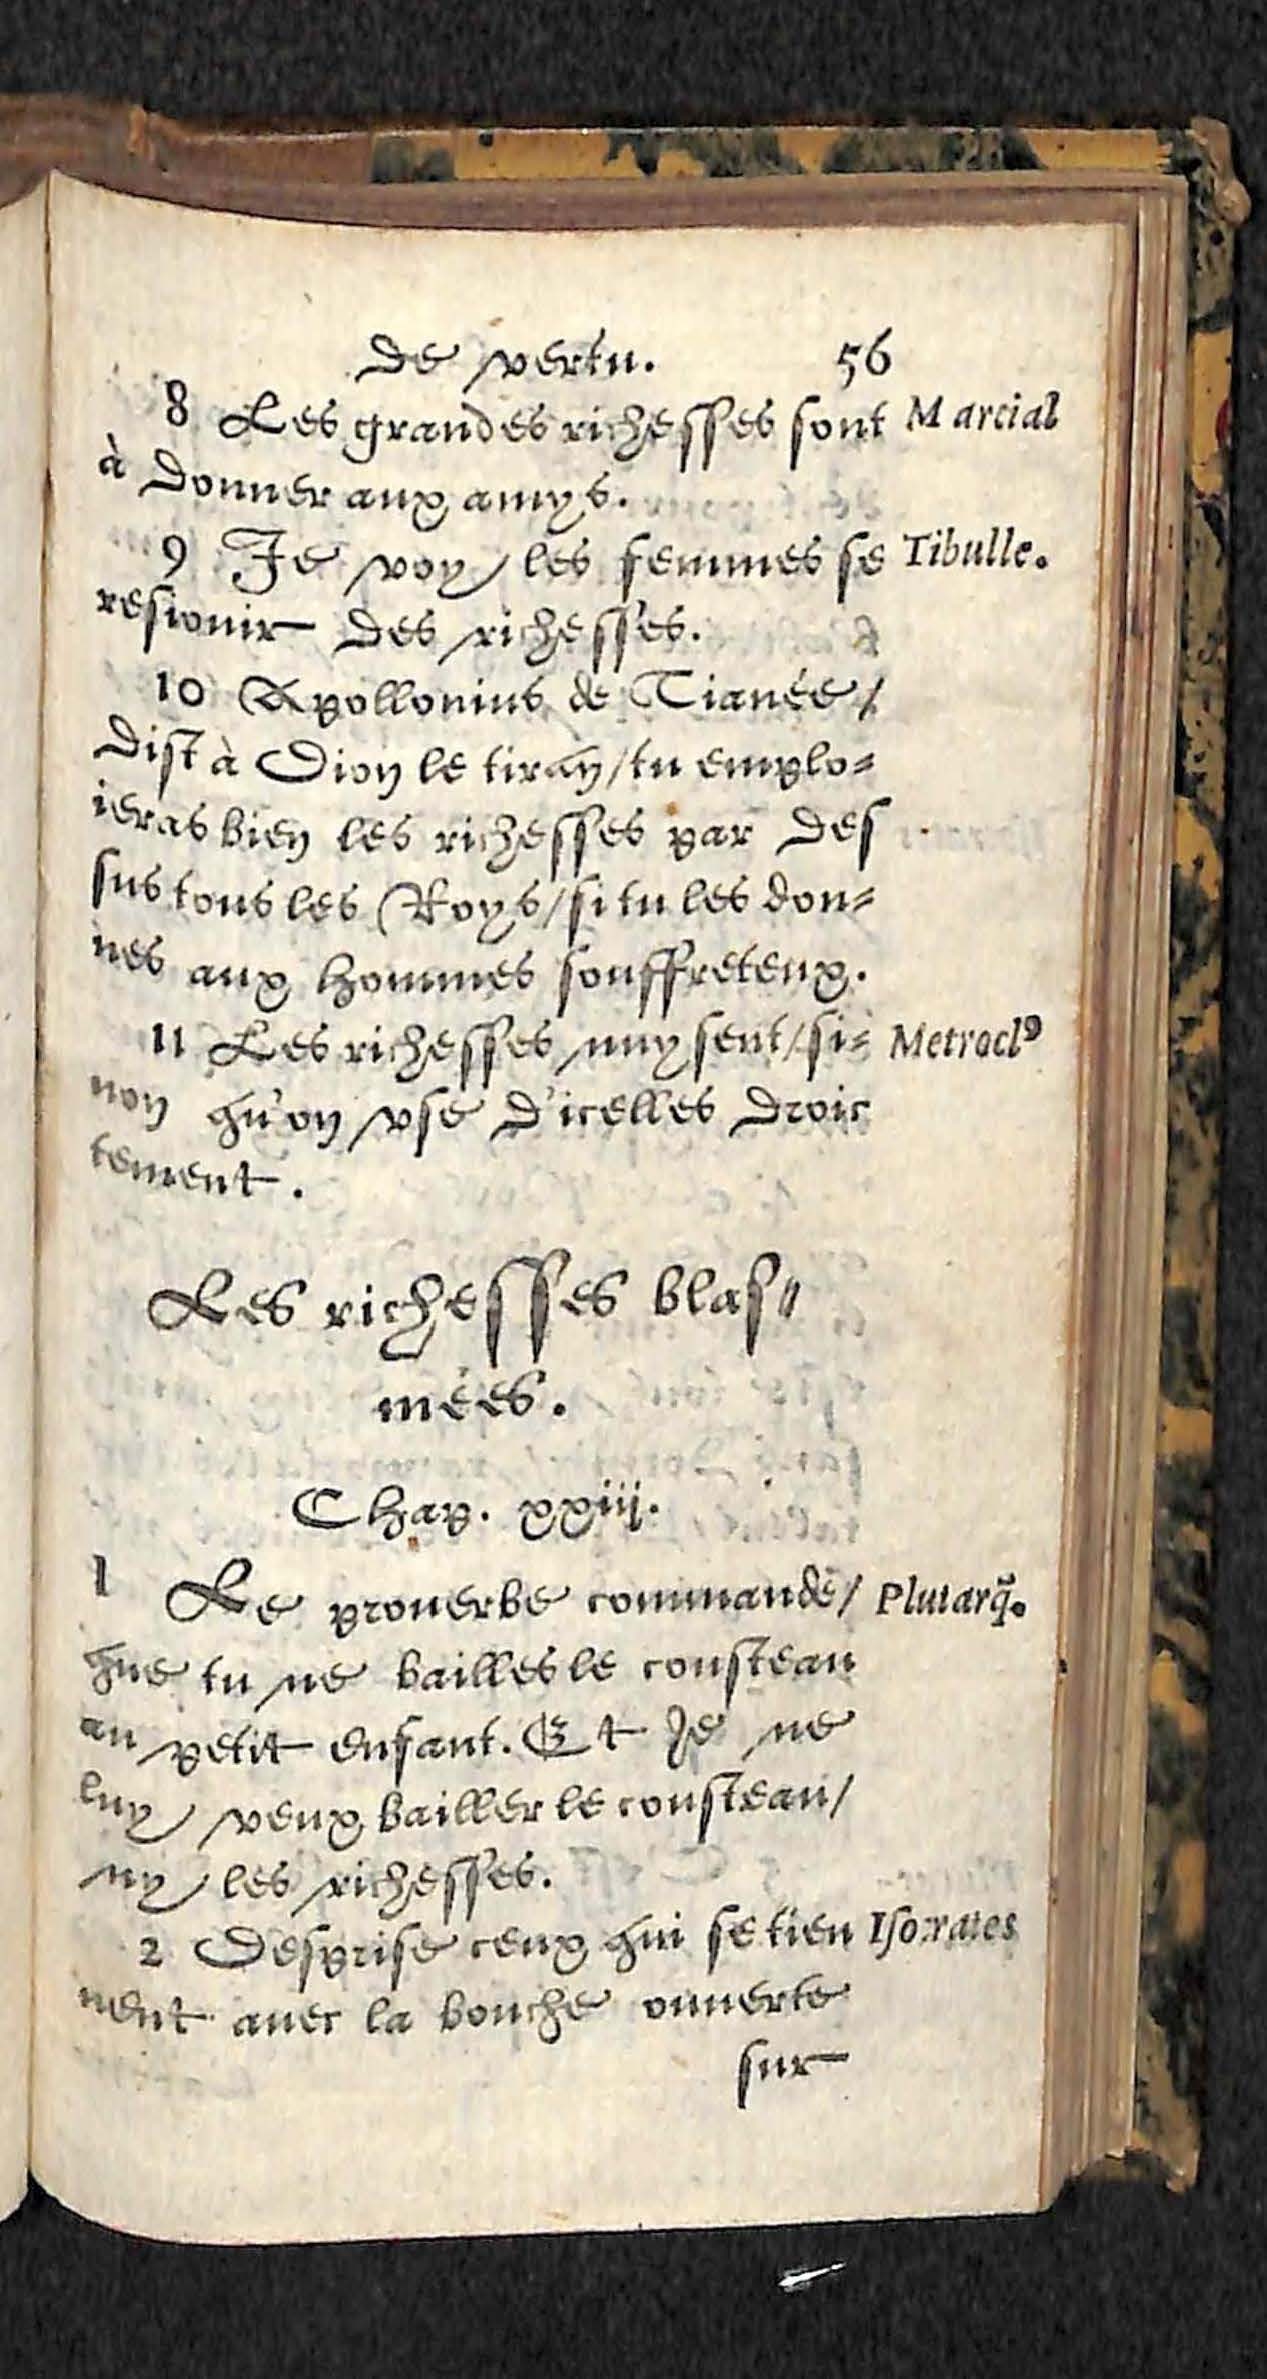 de vertu. 56
8 Les grandes richesses sont Marcial
à donner aux amys.
9 Je voy les femmes se Tibulle.
resiouir des richesses.
10 Apollonius de Tianée/
dist à Dion le tiran/tu emplo=
ieras bien les richesses par des
sus tous les Roys/si tu les don=
nes aux hommes souffreteux.
11 Les richesses nuysent/si= Metrocl⁹
non qu'on vse d'icelles droic
tement.
Les richesses blas=
mées.
Chap. xxiij.
1 Le prouerbe commande/ Plutarq̃.
que tu ne bailles le cousteau
au petit enfant. Et Je ne
luy veux bailler le cousteau/
ny les richesses.
2 Desprise ceux qui se tien Isocrates
nent auec la bouche ouuerte
sur